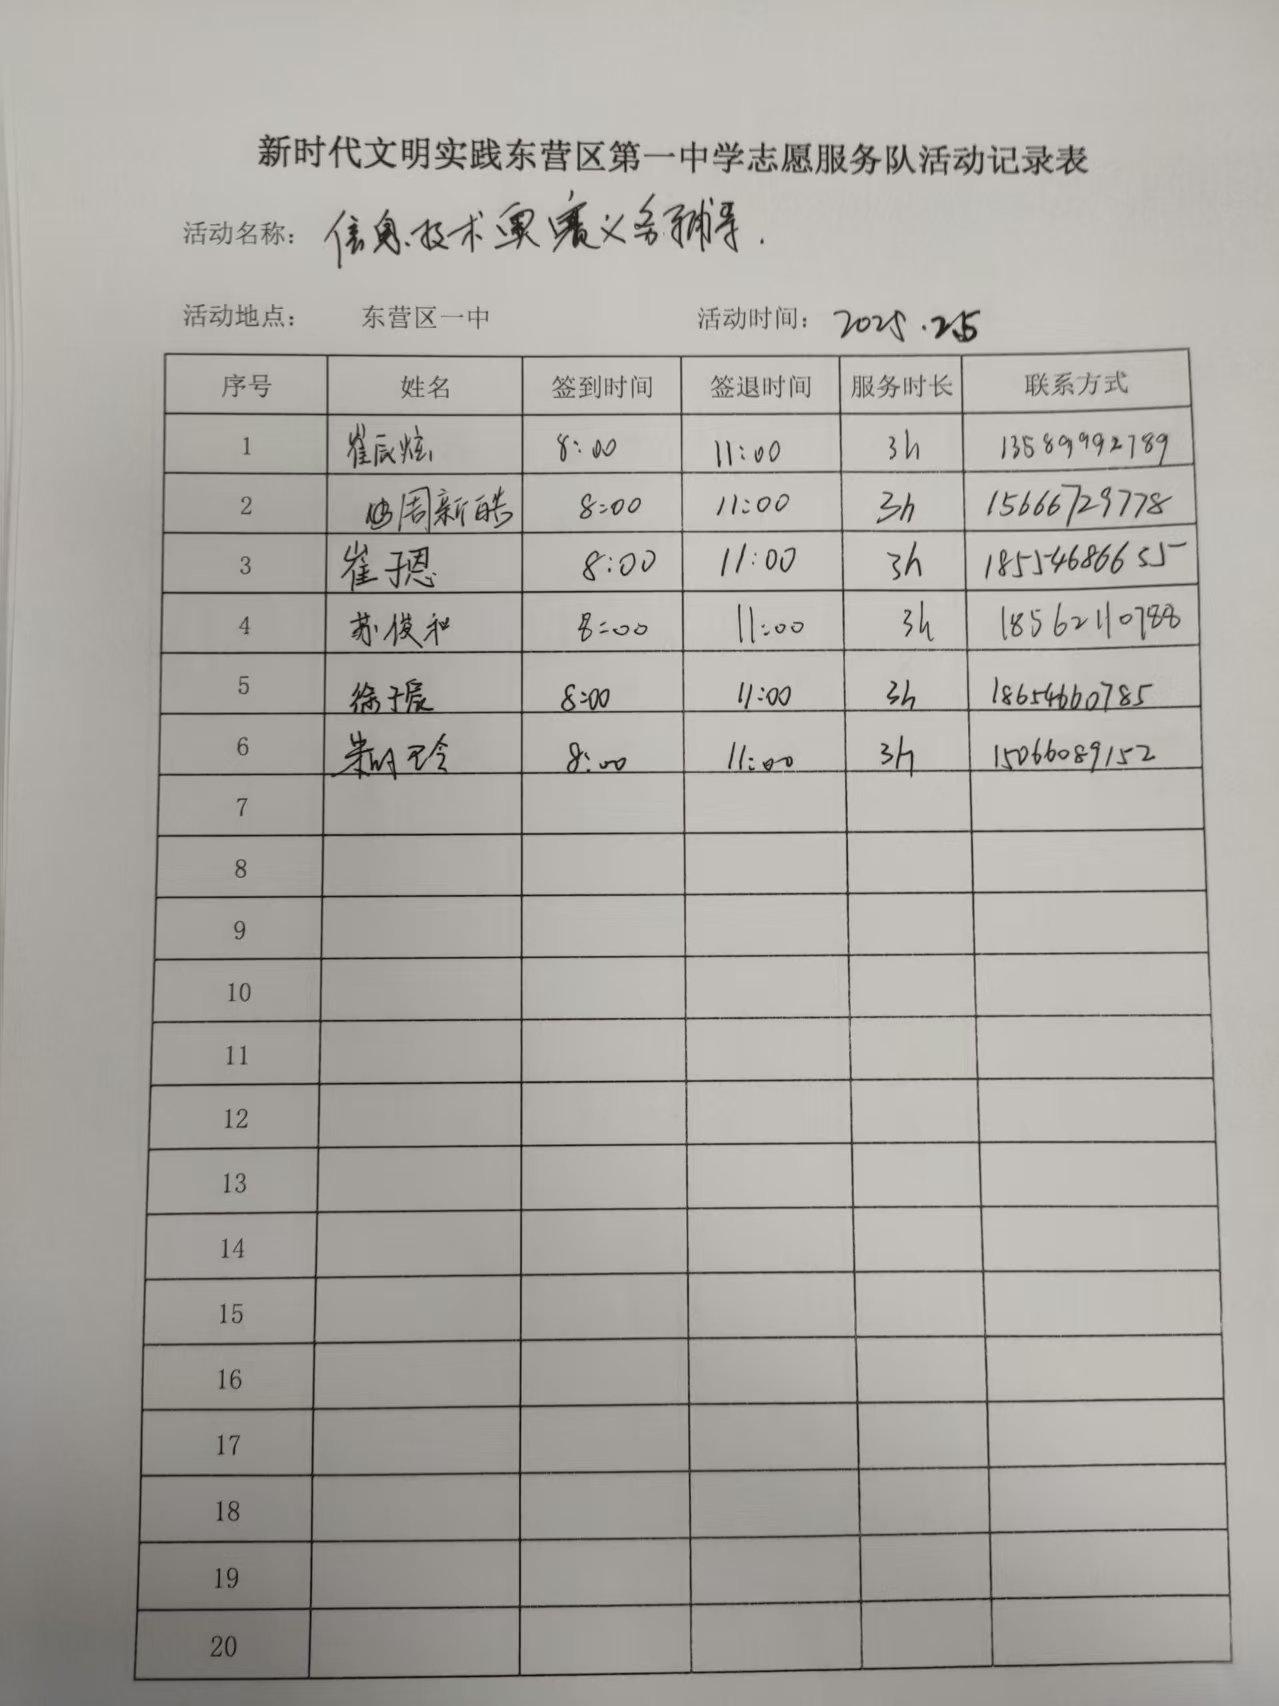 新时代文明实践东营区第一中学志愿服务队活动记录表
活动名称： 信息技术奥赛义务辅导.
活动地点： 东营区一中 活动时间： 2025.2.5
序号 姓名 签到时间 签退时间 服务时长 联系方式
1 崔辰炫 8:00 11:00 3h 13589992789
2 周新皓 8:00 11:00 3h 15666729778
3 崔子恩 8:00 11:00 3h 18554686655
4 苏俊和 8:00 11:00 3h 18562110788
5 徐子宸 8:00 11:00 3h 18654660785
6 8:00 11:00 3h 15066089152
7
8
9
10
11
12
13
14
15
16
17
18
19
20